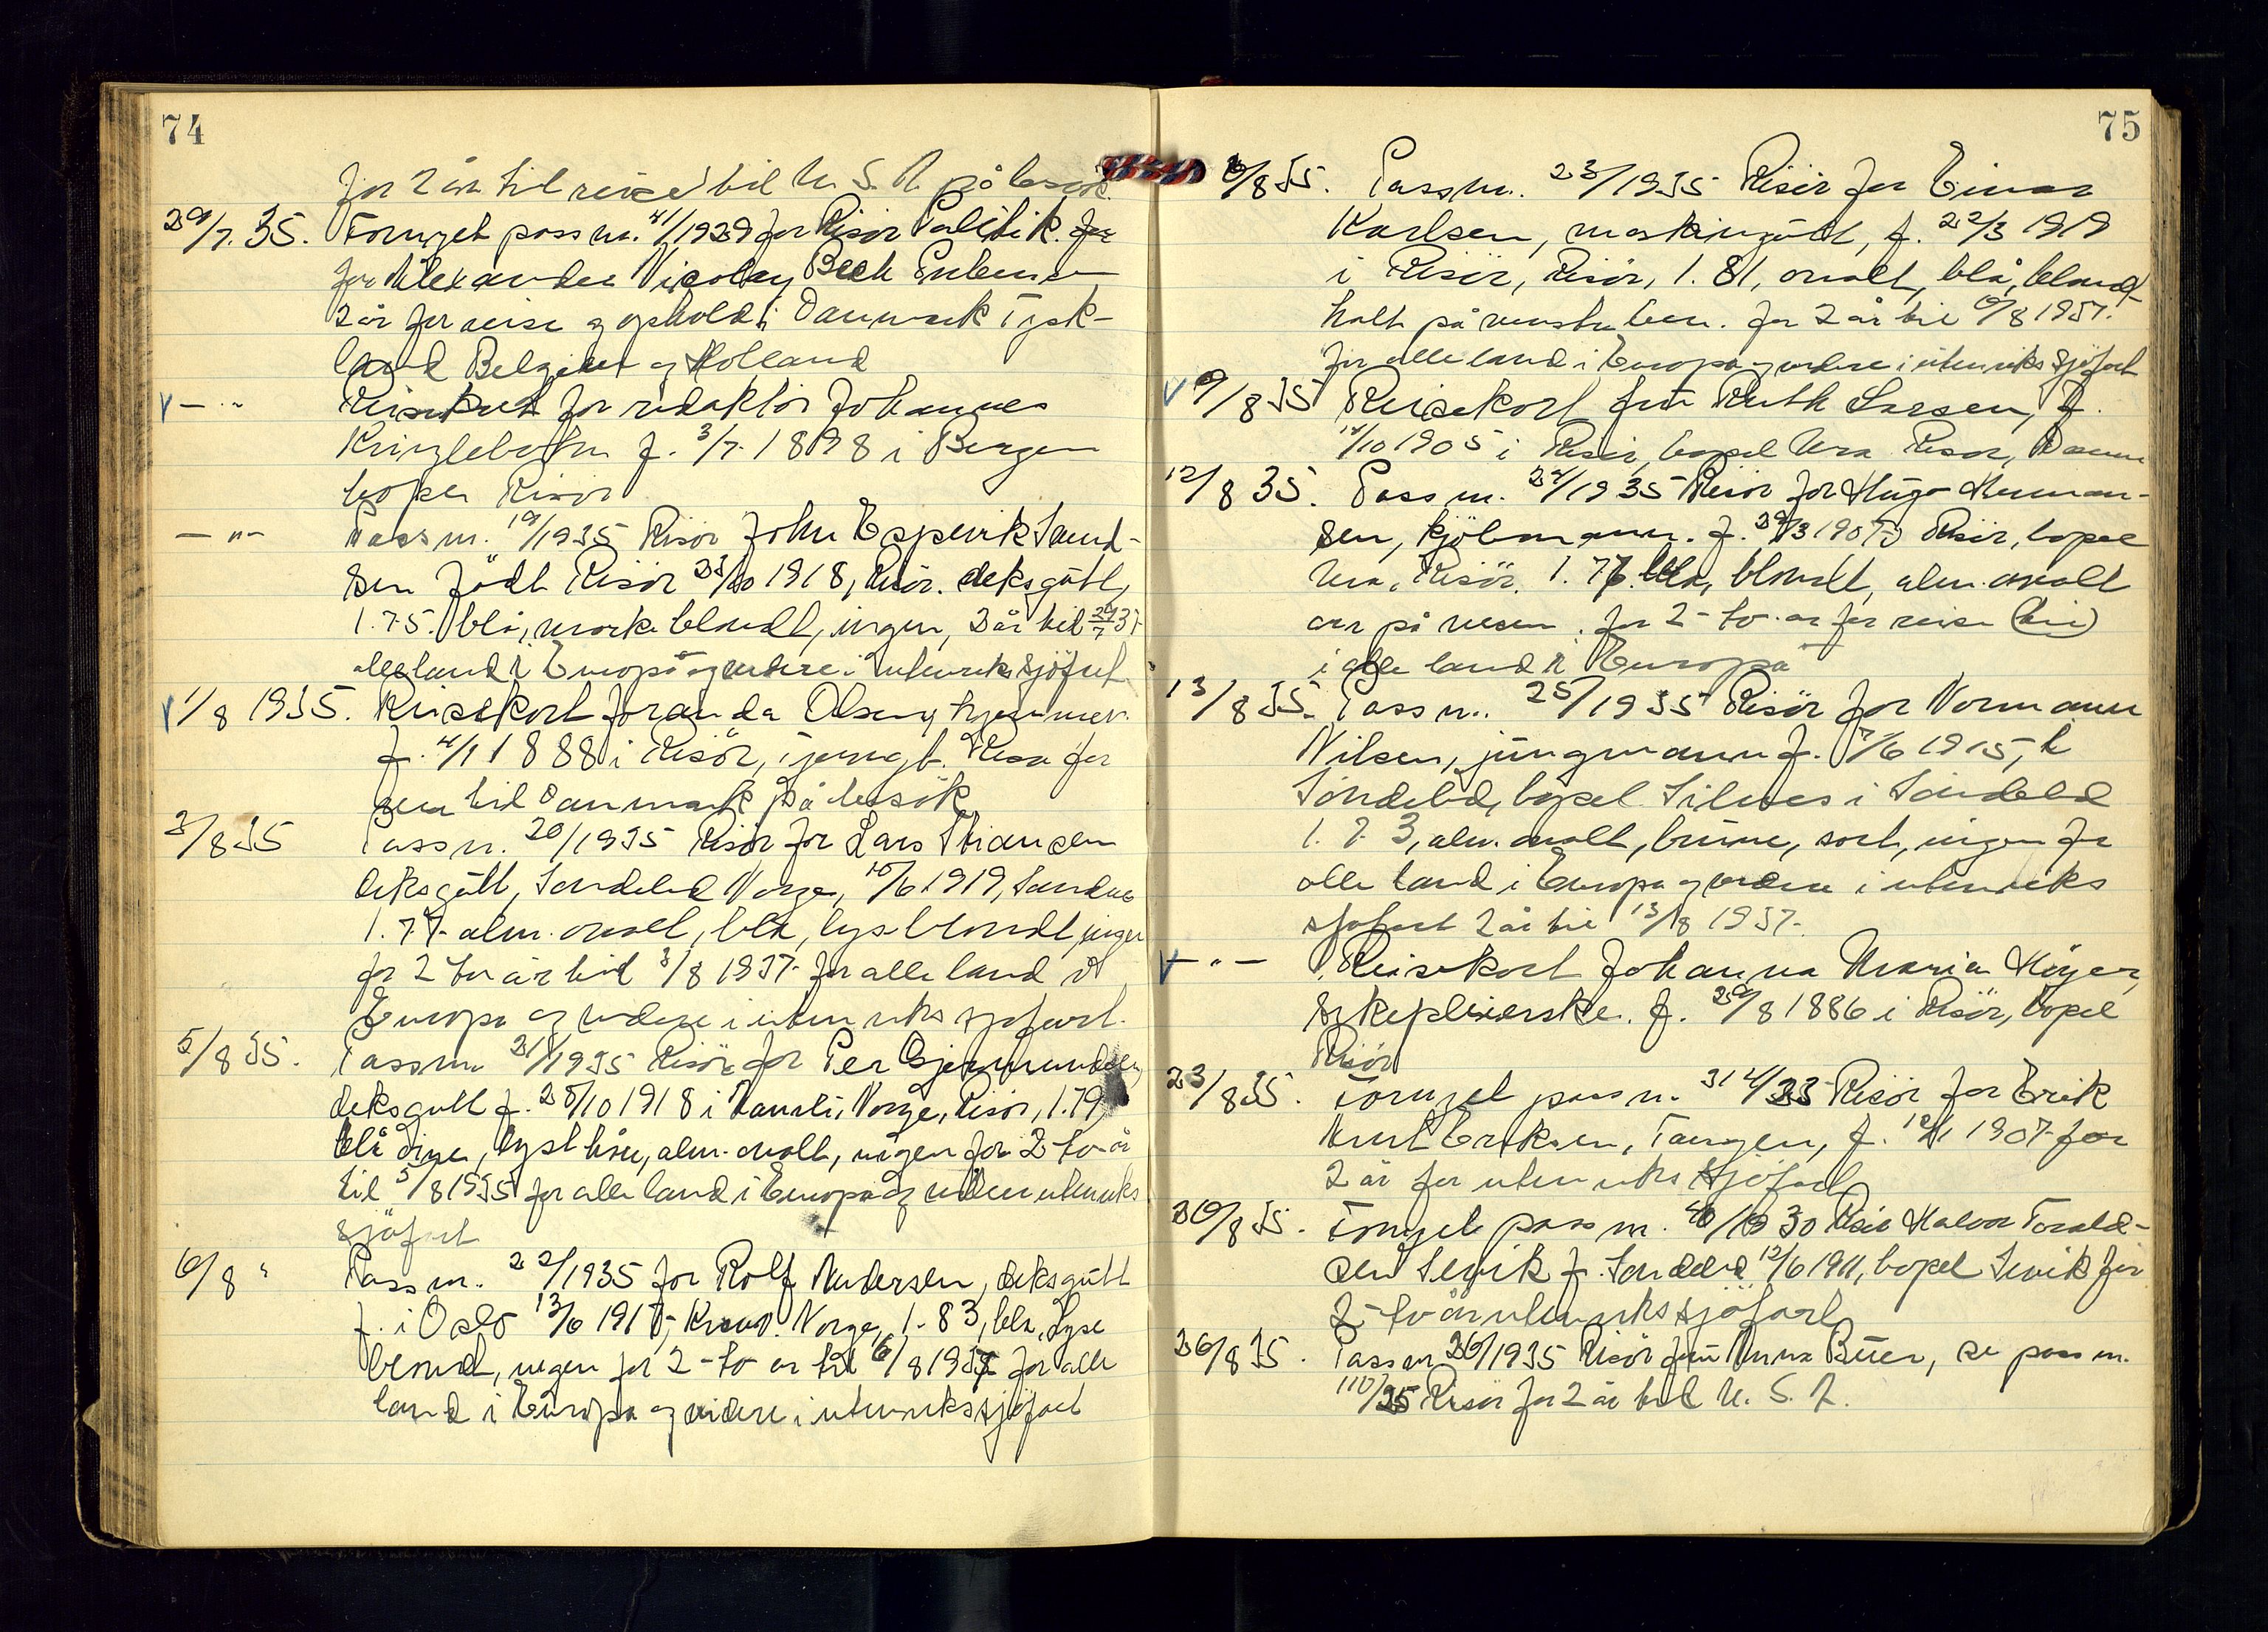 74
for 2 år til reise til U. S. A. på besøk.
29/7. 35. Fornyet pass nr. 41/1929 for Risör Politik. for
for Alexander Nicolay Bech
2 år for reise og ophold i Danmark Tysk-
land Belgien og Holland
V — „ Reisekort for redaktör Johannes
Kringlebotn f. 3/7. 1898 i Bergen
bopel Risör
— „ — Pass nr. 19/1935 Risör John Espevik Saund-
sen född Risör 23/10 1918, Risör. deksgutt,
1.75. blå, mørke blondt, ingen, 2 år til
alle land i Europa og videre i utenriks sjöfart
V 1/8 1935. Reisekort for anda Olsen, hjemmev.
f. 4/1 1888 i Risör, i jerngt. Risör for
reise til Danmark på besök
3/8 35 Pass nr. 20/1935 Risör for Lars Thiansen
deksgutt, Söndeled Norge, 10/6 1919, Sandnes
1.77. alm. ovalt, blå, lys blondt, ingen
for 2 to år til 3/8 1937. for alle land i
Europa og videre i utenriks sjöfart.
5/8 35. Pass nr. 21/1935 Risör for Per Gjermundsen,
deksgutt f. 28/10 1918 i Vansli, Norge, Risör, 1.79,
blå öine, lyst hår, alm. ovalt, ingen for 2-to-år
til 5/8 1935 for alle land i Europa og videre utenriks
sjöfart
6/8 „ Pass nr. 22/1935 for Rolf Andersen, deksgutt
f. i Oslo 13/6 1917, Norge, 1.83, blå, Lyse
blond, ingen for 2-to-år til 6/8 1937 for alle
land i Europa og videre i utenriks sjöfart
75
6/8 35. Pass nr. 23/1935 Risör for Einar
Karlsen, maskingutt, f. 22/3 1919
i Risör, Risör, 1.81, ovalt, blå, blond
halt på venstre ben. for 2 år til 6/8 1937.
for alle land i Europa og videre i utenriks sjöfart
V 9/8 35 Reisekort frü Ruth Larsen, f.
11/10 1905 i Risör, bopel Ura Risör, Danm
12/8 35. Pass nr. 24/1935 Risör for Hugo Herman-
sen, kjöbmann. f. 29/3 1907 i Risör, bopel
Ura, Risör. 1.76. blå, blondt, alm. ovalt
arr på nesen. for 2-to-år for reise
i alle land i Europa
13/8 35. Pass nr. 25/1935 Risör for Normann
Nilsen, jüngmann f. 7/6 1915, i
Söndeled, bopel Silnes i Söndeled
1.73, alm. ovalt, brüne, sort, ingen for
alle land i Europa og videre i utenriks
sjöfart 2 år til 13/8 1937.
V — „ — Reisekort Johanna Maria Höyer,
sykepleierske. f. 29/8 1886 i Risör, bopel
Risör
23/8 35. Fornyet pass nr. 314/33 Risör for Erik
Knut Eriksen, Tangen, f. 12/1 1907. for
2 år for utenriks sjöfart
30/8 35. Fornyet pass nr. 40/1930 Risör Halvor Torald-
sen Sevik f. Söndeled 12/6 1911, bopel Sevik for
2-to år utenriks sjöfart
26/8 35. Pass nr 26/1935 Risör frü Anna Büer, se pass nr.
110/25 Risör for 2 år til U. S. A.